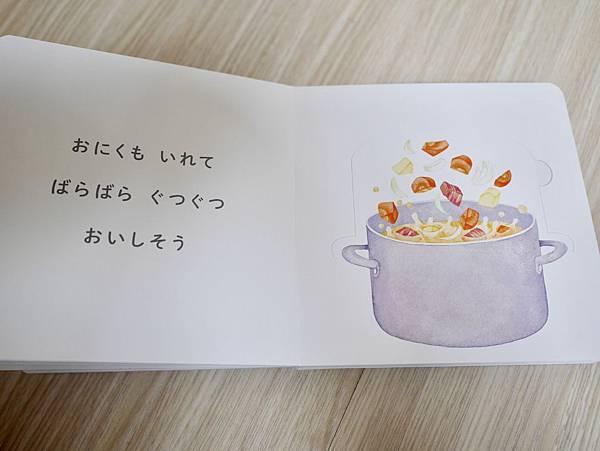 おにくも いれて
ばらばら ぐつぐつ
おいしそう